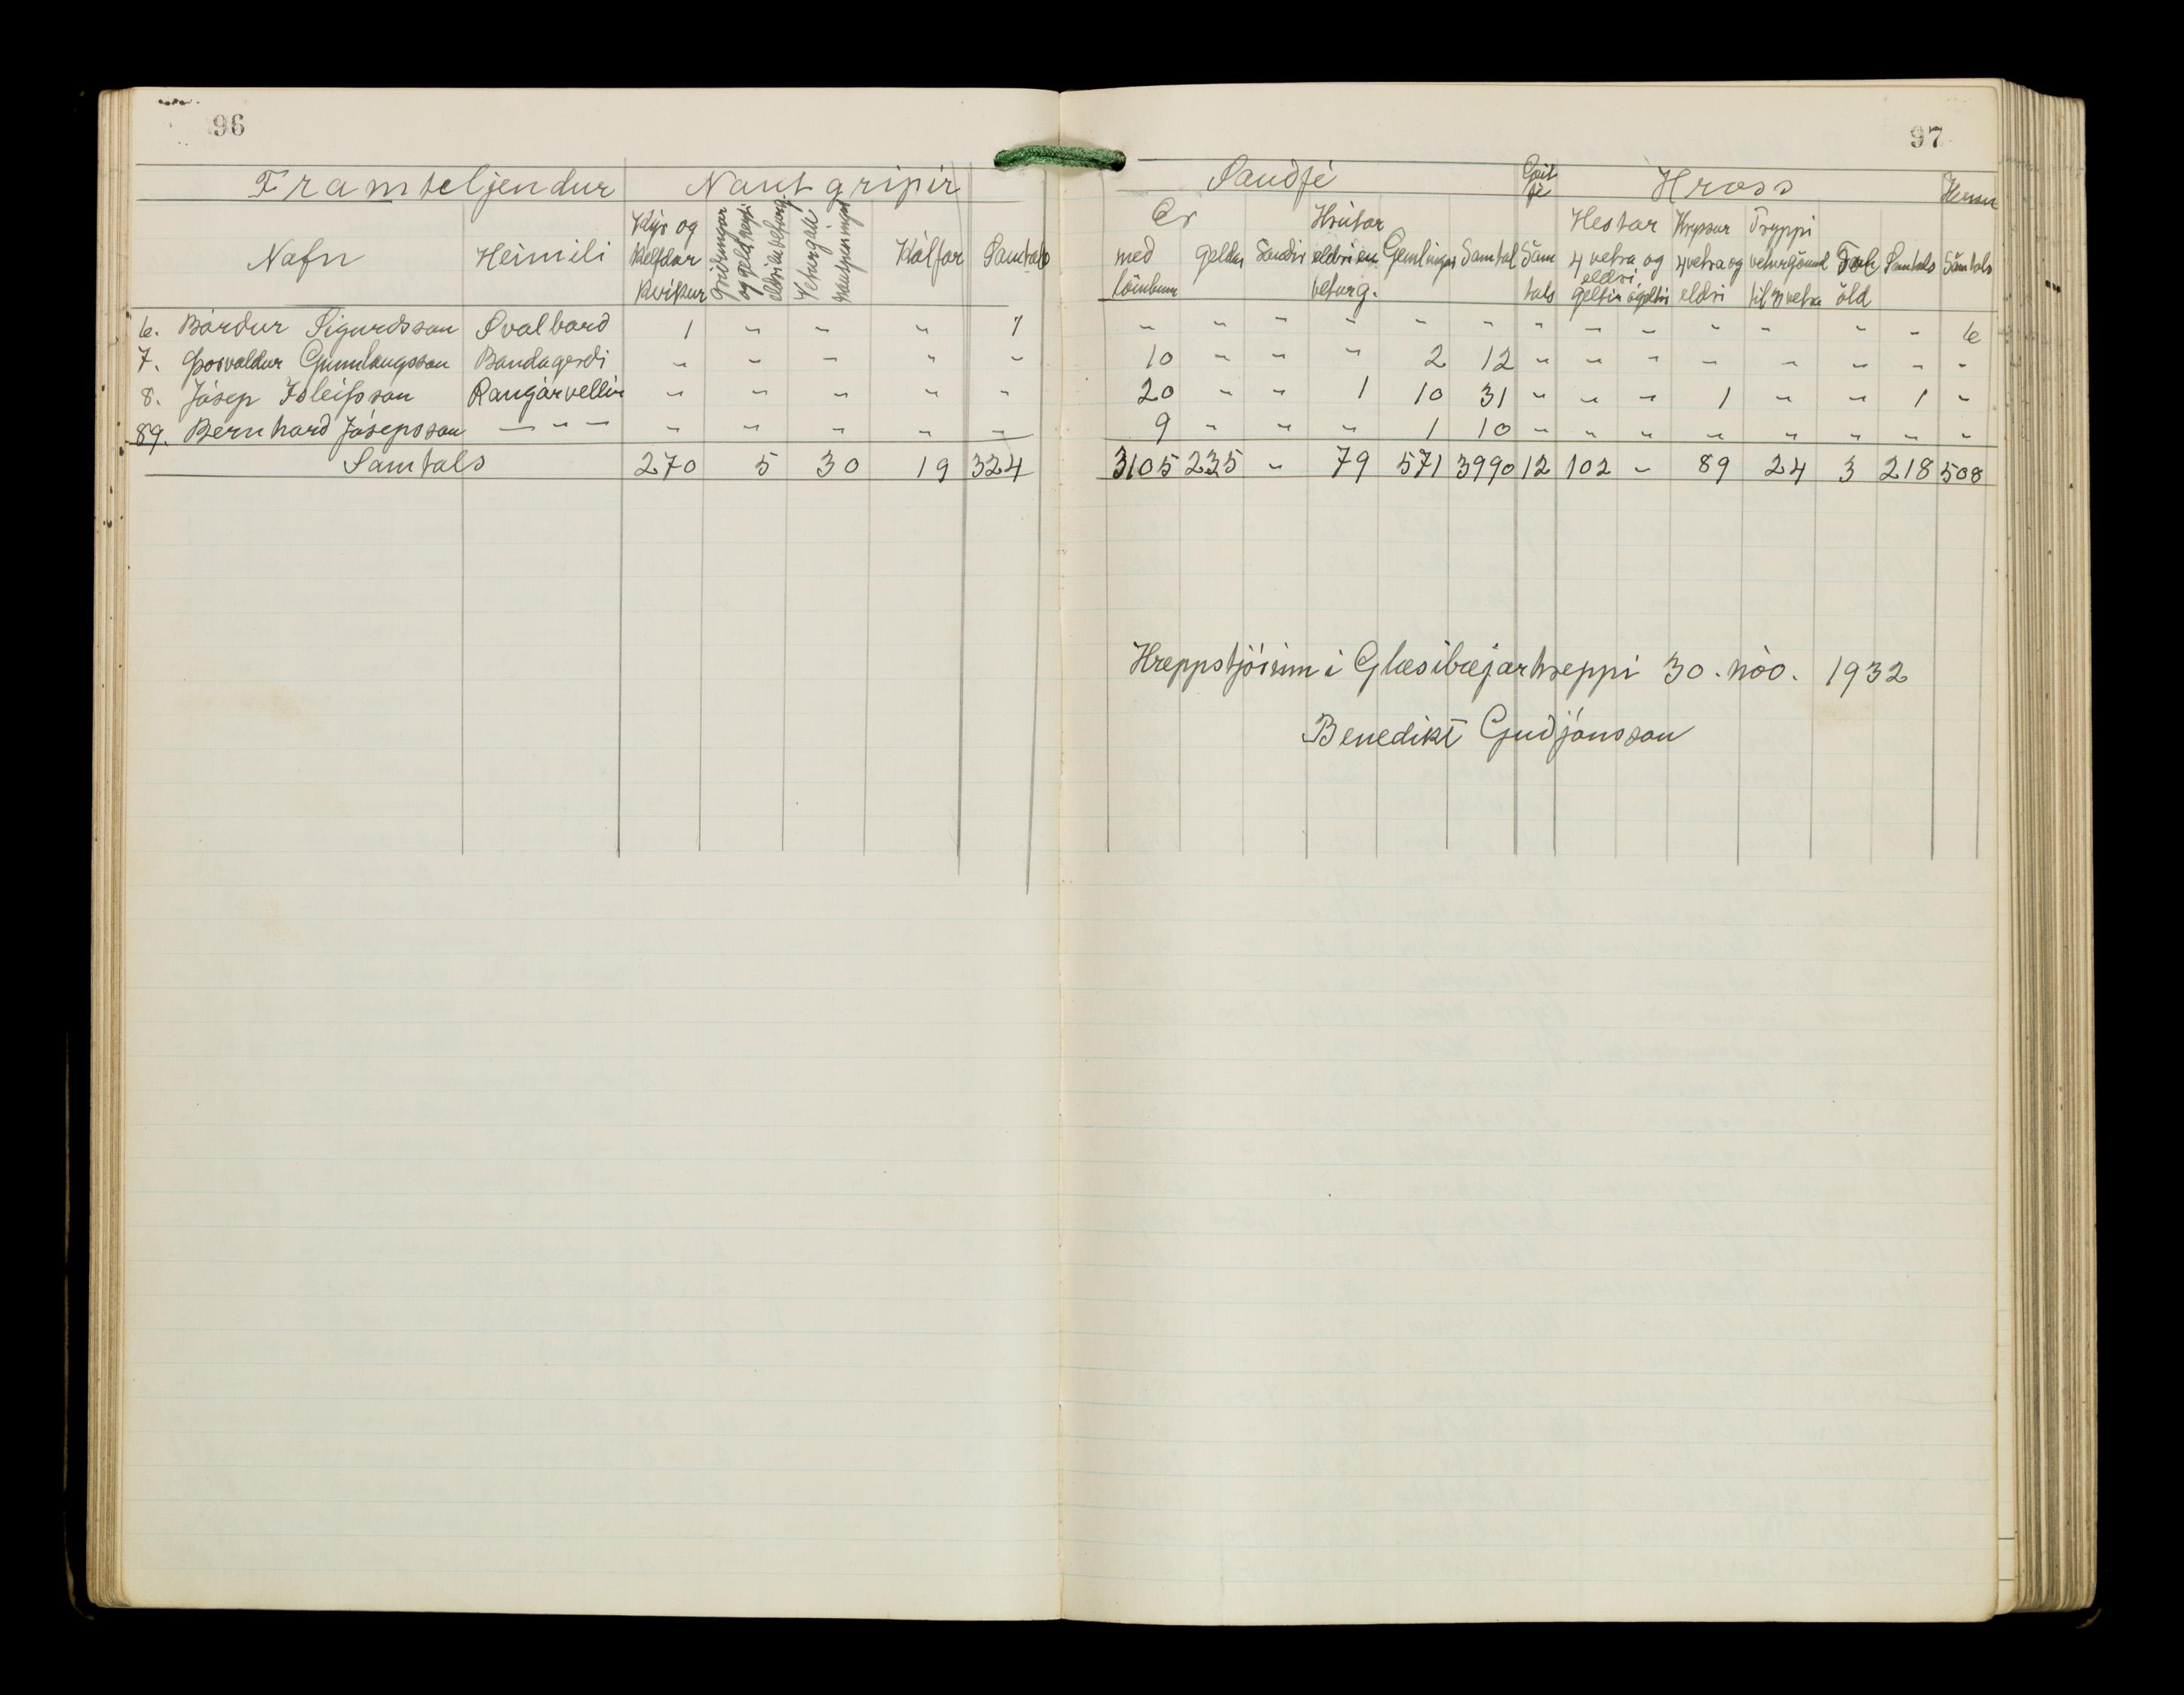 96
Framteljendur Nautgripir
Nafn Heimili Kýr og kelfdar kvígur Griðungar og geldneyti eldri en veturg. Veturgali nautpeningur Kálfar Samtals
6. Bárður Sigurdsson Svalbard 1 " " " 1
7. Þorvaldur Gunnlaugsson Bandagerdi " " " " "
8. Jósep Ísleifsson Rangárvellir " " " " "
89. Bernhard Jósepsson — " — " " " " "
Samtals 270 5 30 19 324
97
Saudfé Geitfé Hross Hænsn
Ær med lömbum geldar Saudir Hrútar eldri en veturg. Gemlingar Samtal Samtals Hestar 4 vetra og eldri geltir ógeltir Hryssur 4 vetra og eldri Tryppi veturgömul til 3 vetra Folöld Samtals Samtals
" " " " " " " " " " " " " 6
10 " " " 2 12 " " " " " " " "
20 " " 1 10 31 " " " 1 " " 1 "
9 " " " 1 10 " " " " " " " "
3105 235 " 79 571 3990 12 102 " 89 24 3 218 508
Hreppstjórinn i Glæsibæjarhreppi 30. nóv. 1932
Benedikt Gudjónsson